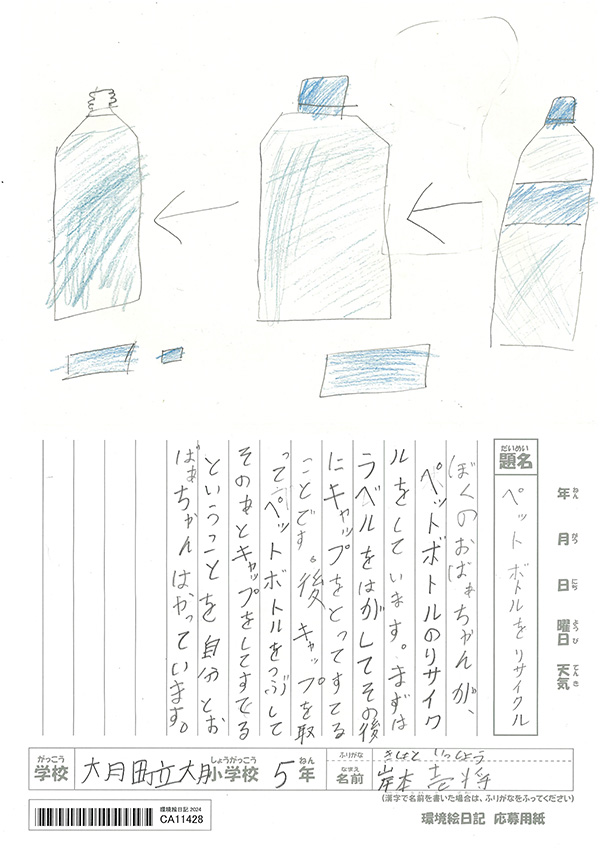 年ねん
月がつ
日にち
曜日ようび
天気てんき
題名だいめい
ペットボトルをリサイクル
ぼくのおばぁちゃんが、
ペットボトルのリサイク
ルをしています。まずは
ラベルをはがしてその後
にキャップをとってすてる
ことです。後、キャップを取
ってペットボトルをつぶして
そのあとキャップをしてすてる
ということを自分とお
ばぁちゃんはやっています。
がっこう しょうがっこう ねん
学校 大月町立大月小学校 5年
ふりがな きしもと いっしょう
なまえ
名前 岸本 壱将
(漢字で名前を書いた場合は、ふりがなをふってください)
環境絵日記 2024
CA11428
環境絵日記 応募用紙